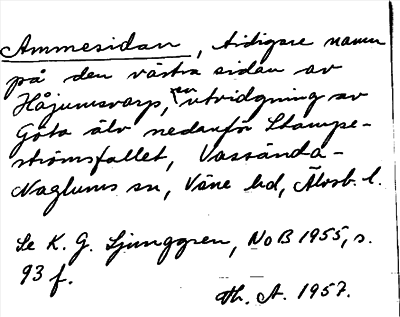 Ammesidan, tidigare namn
på den västra sidan av
Håjumsvarp, en utvidgning av
Göta älv nedanför Stampe-
strömsfallet, Vassända-
Naglums sn, Väne hd, Älvsb. l.
Se K. G. Ljunggren, NoB 1955, s.
93 f.
Th. A. 1957.